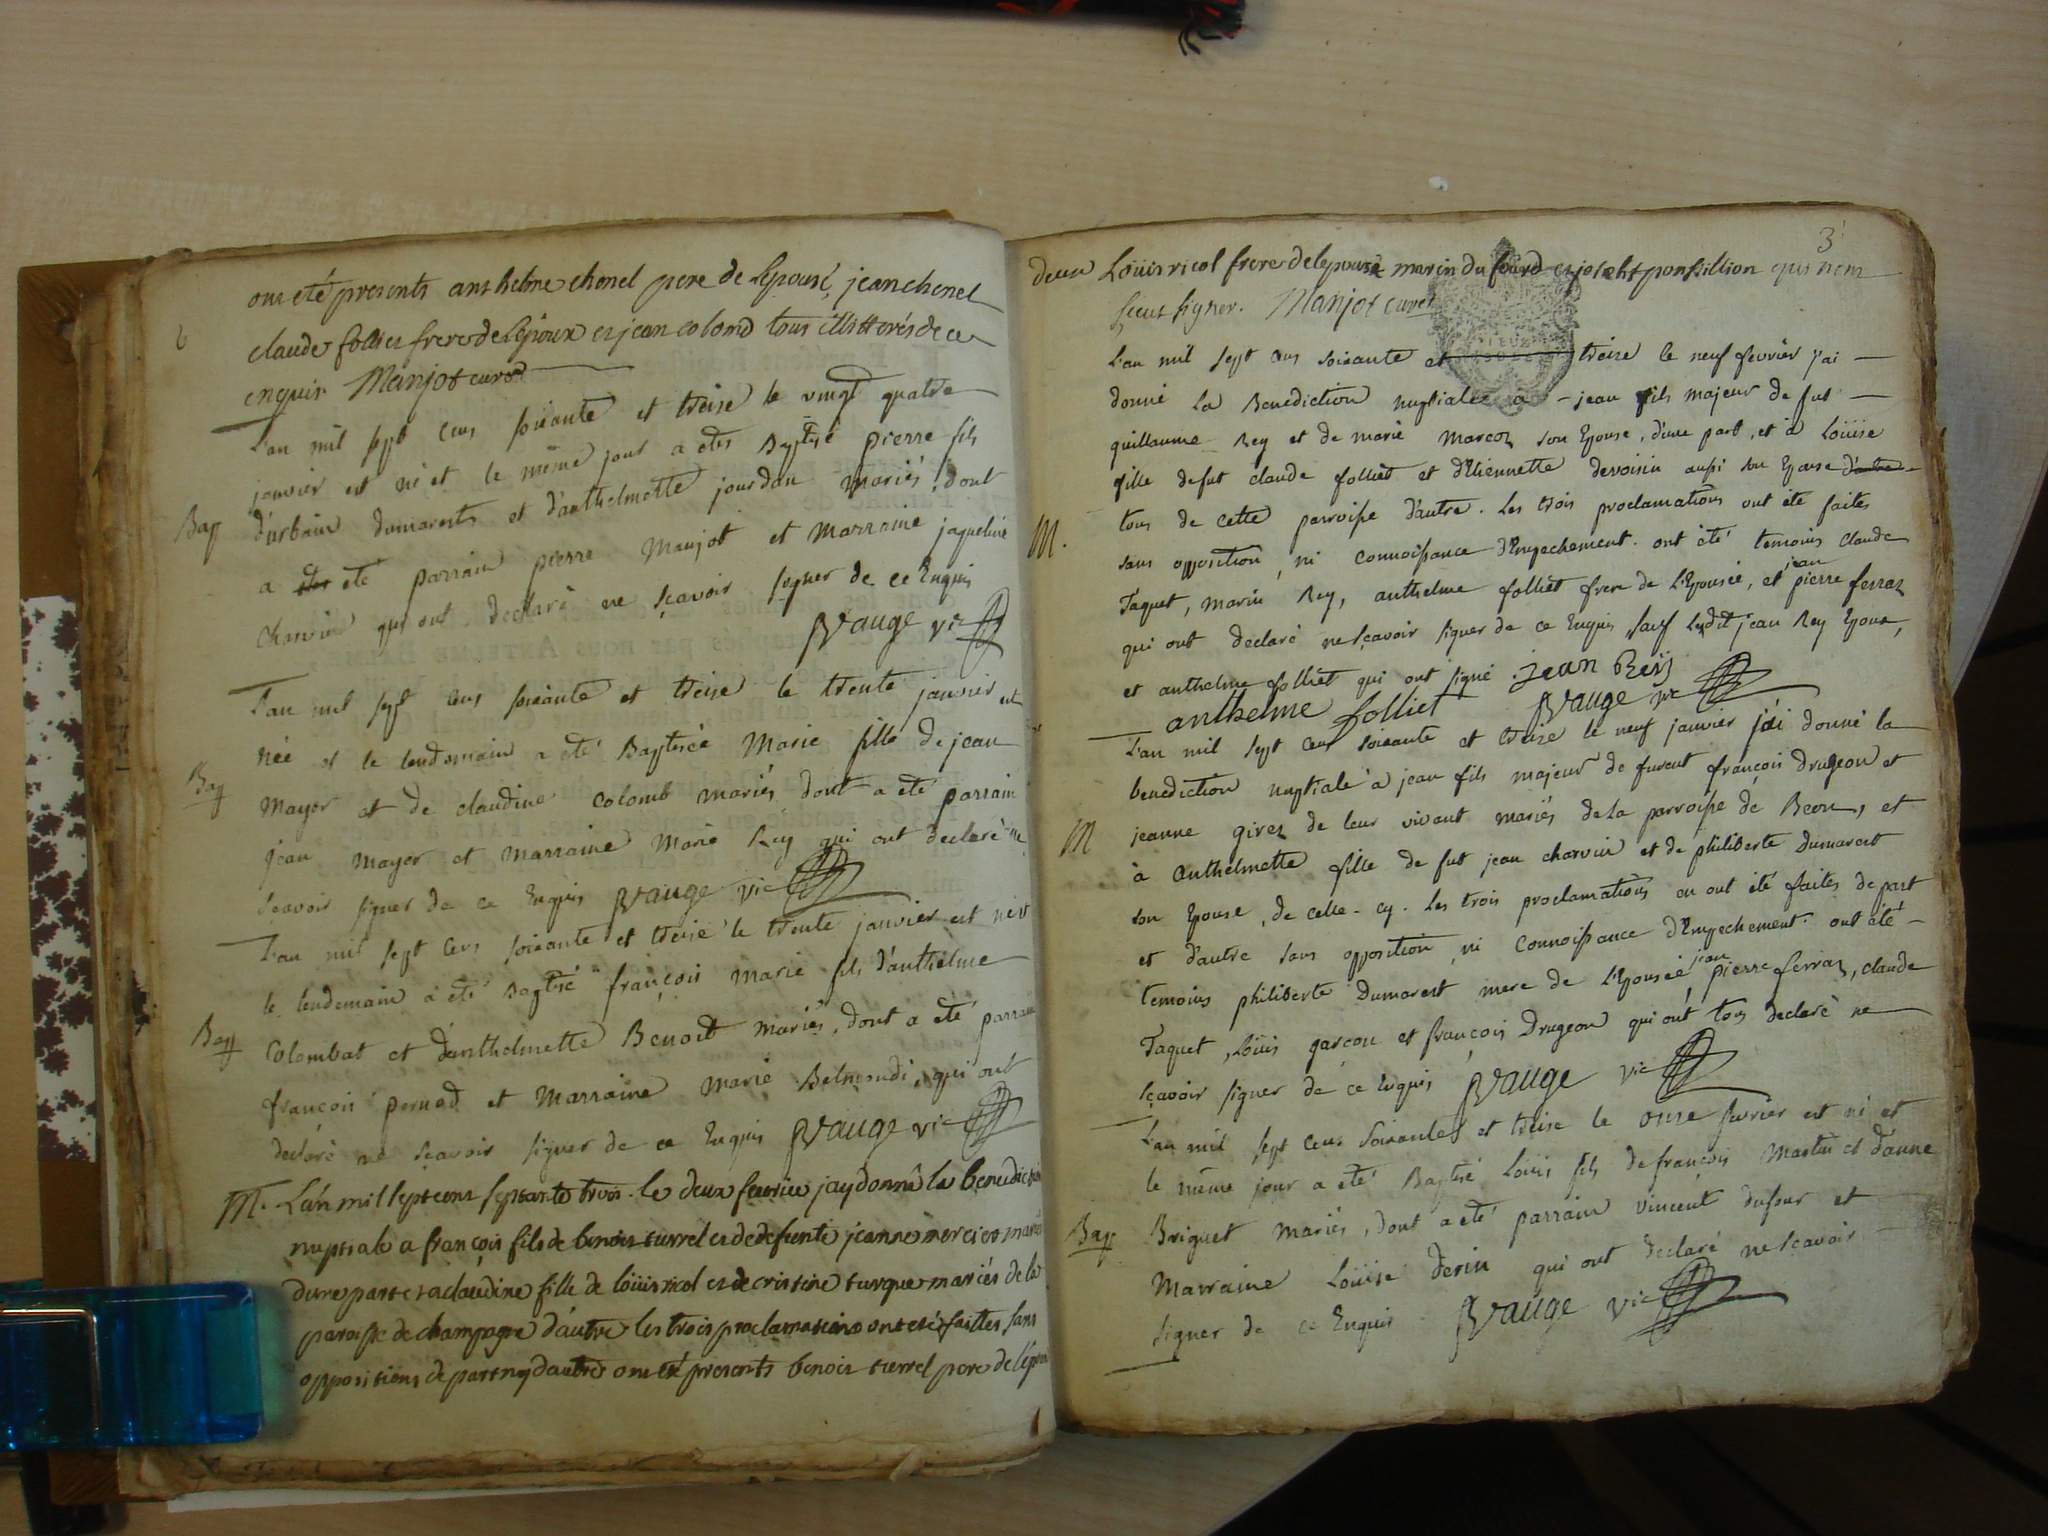 ont été presents anthelme chenel pere de Lepouse, jean chenel
claude folliet frere de Lépoux et jean colomb tous illitterés de ce
enquis Manjot curé
L'an mil sept cens soixante et treise le vingt quatre
janvier est né et le même jour a etés Baptisé pierre fils
Bap d'urbain dumarests et d'anthelmette jourdan mariés, dont
a été parrain pierre Manjot et Marraine jaqueline
charvin qui ont declaré ne sçavoir signer de ce Enquis
pvauge vic
L'an mil sept cens soixante et treise le trente janvier est
née et le lendemain a été Baptisée Marie fille de jean
Bap Mayer et de claudine colomb mariés, dont a été parrain
jean mayer et marraine Marie Rey qui ont declaré ne
scavoir signer de ce Enquis pvauge vic
L'an mil sept cens soixante et treise le trente janvier est né et
le lendemain a été Baptisé françois marie fils d'anthelme
Bap Colombat et d'anthelmette Benoit mariés, dont a été parrain
françois pernod et Marraine marie Belmondi, qui ont
declaré ne scavoir signer de ce Enquis pvauge vic
M. L'an mil sept cent septante trois le deux fevrier jay donné la benediction
nuptiale a françois fils de benoit turrel et de defunte jeanne mercier mariés
dune part et a claudine fille de loüis ricol et de cristine turque mariés de la
paroisse de champagne d'autre les trois proclamations ont eté faittes sans
oppositions de part ny dautre ont été presents benoit turrel pere de l'époux
3
deux Loüis ricol frere de lepouse marin du fourd et joseht ponssillion qui nont
sceut signer. Manjot curé
L'an mil sept cens soixante et treise le neuf fevrier j'ai
donné la Benediction nuptialle a jean fils majeur de fut
guillaume Rey et de marie Marcoz son Epouse, d'une part, et à Loüise
fille de fut claude folliet et d'Etiennette devoisin aussi son Epouse d'autre
tous de cette parroisse d'autre. Les trois proclamations ont été faites
M. sans opposition, ni connoissance d'Empechement. ont été temoins claude
Taquet, marin Rey, anthelme folliet frere de L'Epousée, et jean pierre ferraz
qui ont declaré ne sçavoir signer de ce Enquis, sauf Ledit jean Rey Epoux,
et anthelme folliet qui ont signé. jean Reÿ
anthelme folliet pvauge vic
L'an mil sept cens soixante et treize le neuf janvier j'ai donné la
benediction nuptiale à jean fils majeur de furent françois drugeon et
M jeanne girez de leur vivant mariés de la parroisse de Beon, et
à Anthelmette fille de fut jean charvin et de philiberte dumarest
son Epouse, de celle-cy. Les trois proclamations en ont été faites de part
et d'autre sans opposition, ni connoissance d'Empechement. ont été
temoins philiberte Dumarest mere de L'Epousée, jean pierre ferraz, claude
Taquet, Loüis garcon et françois Drugeon qui ont tous declaré ne
sçavoir signer de ce Enquis pvauge vic
L'an mil sept cens soixante et treise le onse fevrier est né et
le même jour a été Baptisé Loüis fils de françois Martin et d'anne
Bap Briguet mariés, dont a été parrain vincent dufour et
Marraine Loüise derin qui ont declaré ne sçavoir
signer de ce Enquis. pvauge vic